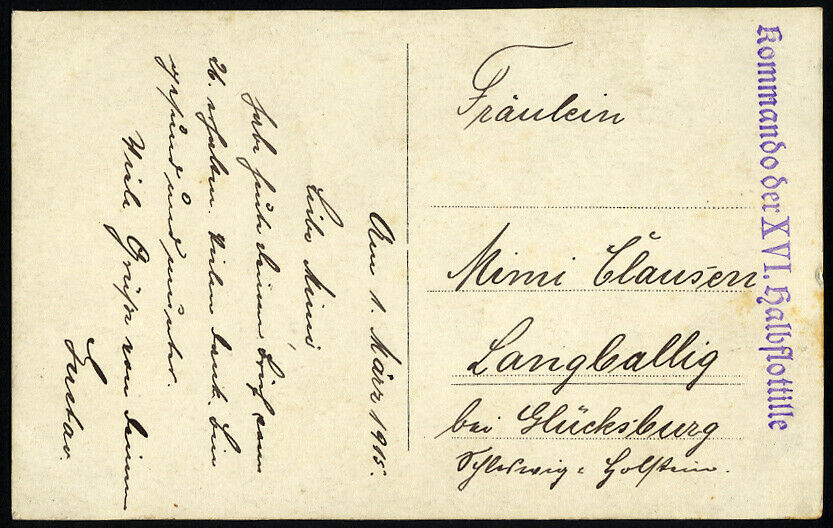 Am 1. März 1915.
Liebe Mimi!
Habe heute Deinen Brief vom
26. erhalten. Vielen Dank. Bin
gesund und munter.
Viele Grüße von Deinem
Gustav.
Fräulein
Mimi Clausen
Langballig
bei Glücksburg
Schleswig-Holstein.
Kommando der XVI. Halbflottille